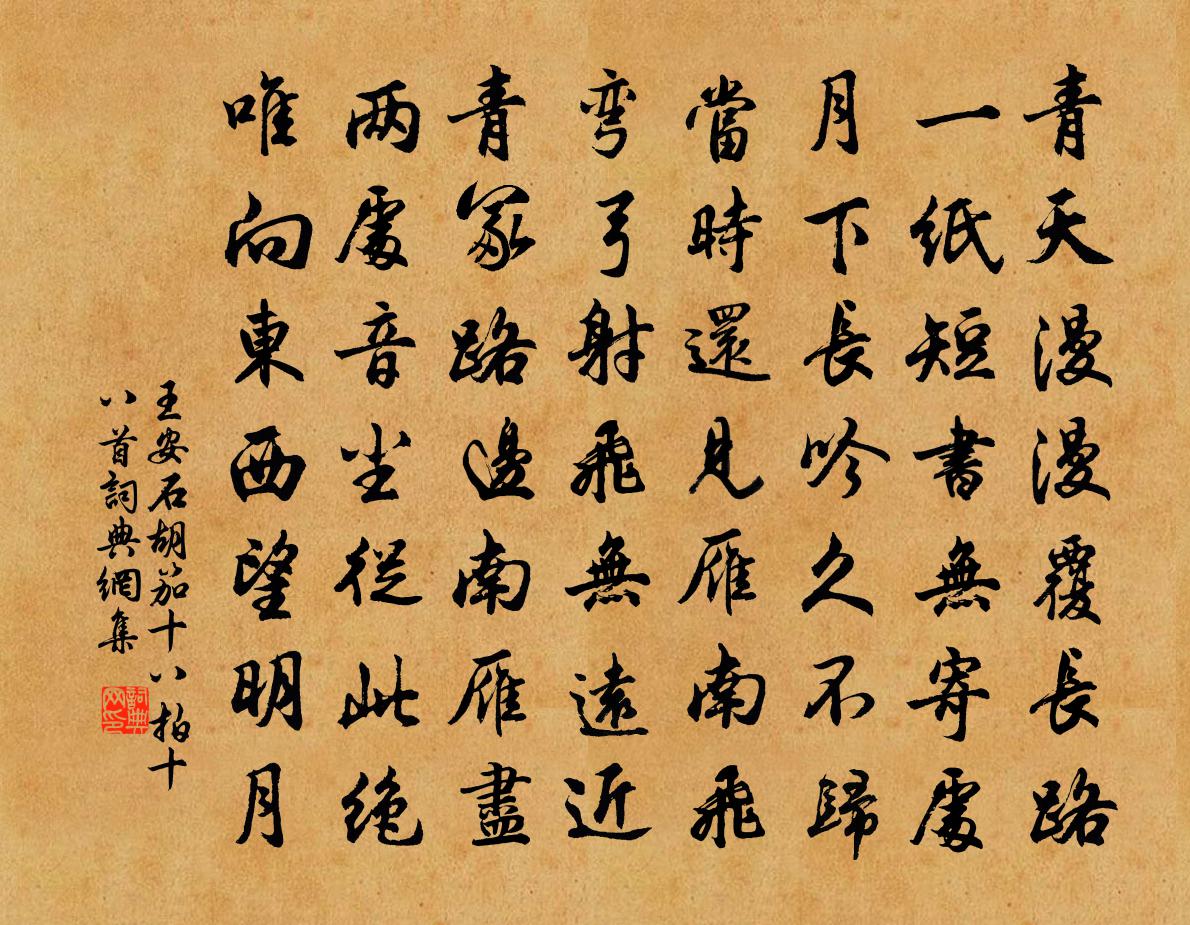 青天漫漫覆長路
一紙短書無寄處
月下長吟久不歸
當時還見雁南飛
弯弓射飛無遠近
青冢路邊南雁盡
两處音尘從此絶
唯向東西望明月
王安石胡笳十八拍十
八首詞典網集
詞典
网印